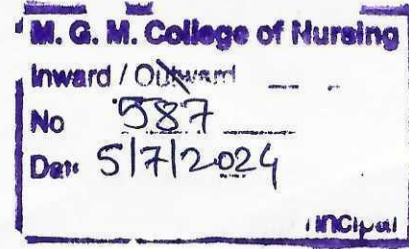 M. G. M. College of Nursing
Inward / Outward
No 587
Date 5/7/2024
Principal